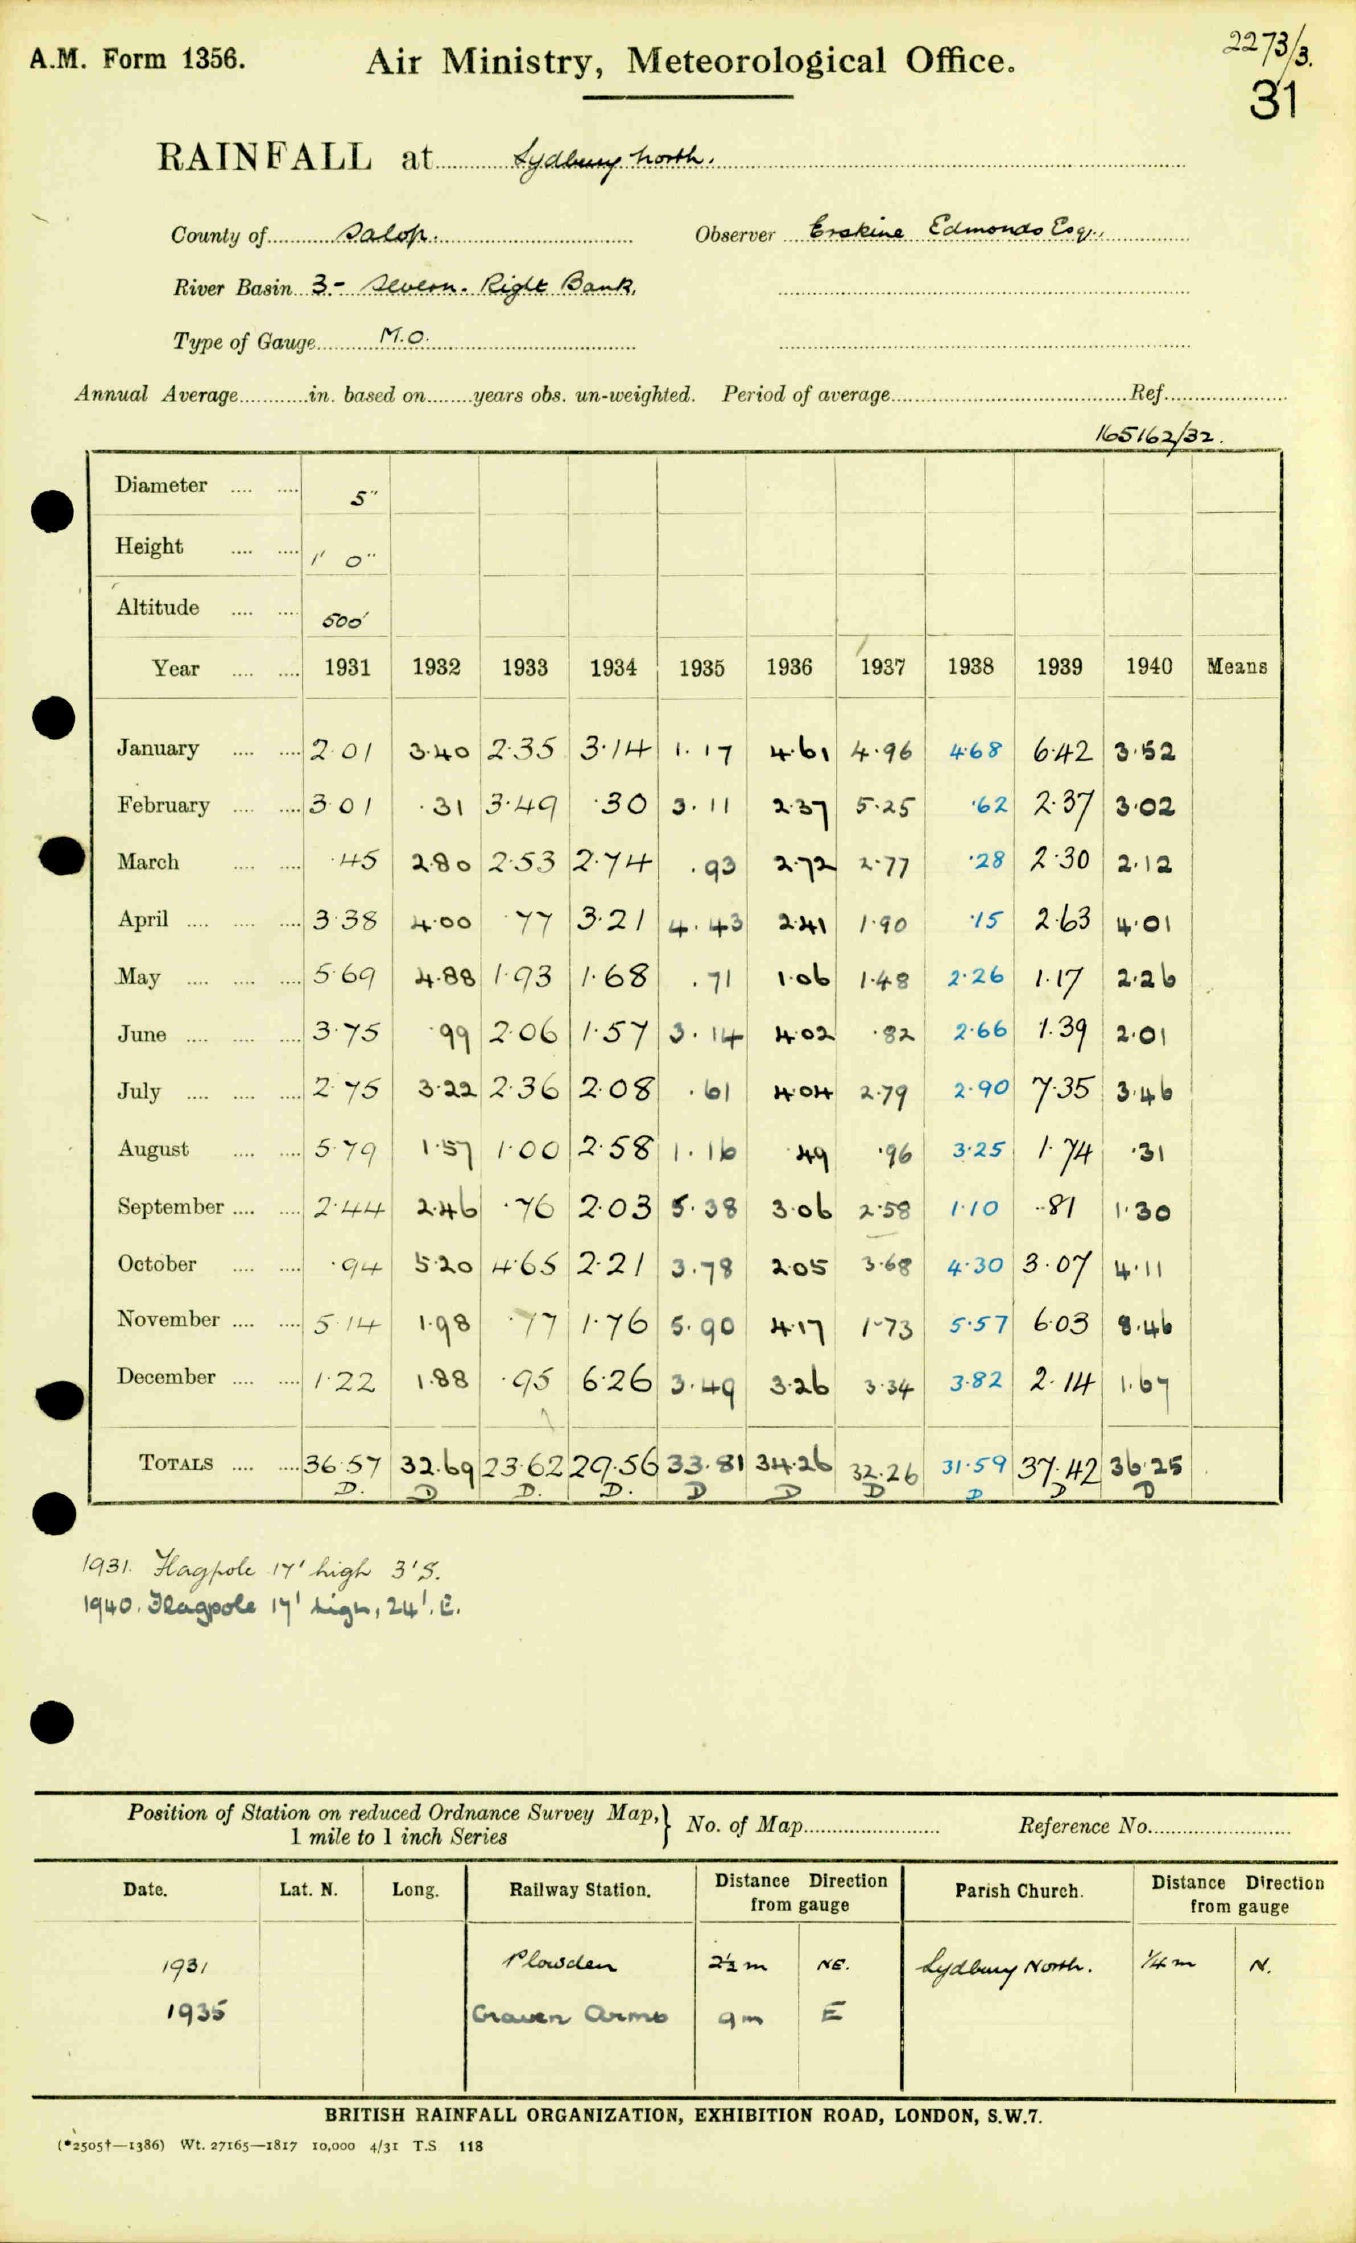 A.M. Form 1356.
Air Ministry, Meteorological Office.
2273/3.
31
RAINFALL at Lydbury North.
County of Salop. Observer Erskine Edmonds Esq.,
River Basin 3.- Severn. Right Bank.
Type of Gauge M.O.
Annual Average in. based on years obs. un-weighted. Period of average Ref.
165162/32.
Diameter 5"
Height 1' 0"
Altitude 500'
Year 1931 1932 1933 1934 1935 1936 1937 1938 1939 1940 Means
January 2.01 3.40 2.35 3.14 1.17 4.61 4.96 4.68 6.42 3.52
February 3.01 .31 3.49 .30 3.11 2.37 5.25 .62 2.37 3.02
March .45 2.80 2.53 2.74 .93 2.72 2.77 .28 2.30 2.12
April 3.38 4.00 .77 3.21 4.43 2.41 1.90 .15 2.63 4.01
May 5.69 4.88 1.93 1.68 .71 1.06 1.48 2.26 1.17 2.26
June 3.75 .99 2.06 1.57 3.14 4.02 .82 2.66 1.39 2.01
July 2.75 3.22 2.36 2.08 .61 4.04 2.79 2.90 7.35 3.46
August 5.79 1.57 1.00 2.58 1.16 .49 .96 3.25 1.74 .31
September 2.44 2.46 .76 2.03 5.38 3.06 2.58 1.10 .81 1.30
October .94 5.20 4.65 2.21 3.78 2.05 3.68 4.30 3.07 4.11
November 5.14 1.98 .77 1.76 5.90 4.17 1.73 5.57 6.03 8.46
December 1.22 1.88 .95 6.26 3.49 3.26 3.34 3.82 2.14 1.67
TOTALS 36.57 32.69 23.62 29.56 33.81 34.26 32.26 31.59 37.42 36.25
D. D D. D. D D D D D D
1931. Flagpole 17' high 3'S.
1940. Flagpole 17' high, 24'. E.
Position of Station on reduced Ordnance Survey Map, 1 mile to 1 inch Series } No. of Map Reference No.
Date. Lat. N. Long. Railway Station. Distance Direction from gauge Parish Church. Distance Direction from gauge
1931 Plowden 2½m NE. Lydbury North. ¼m N.
1935 Craven Arms 9m E
BRITISH RAINFALL ORGANIZATION, EXHIBITION ROAD, LONDON, S.W.7.
(*2505†—1386) Wt. 27165—1817 10,000 4/31 T.S 118